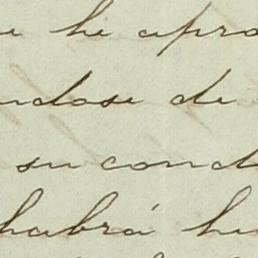 e he apro
ndose de
su cond
habrá he